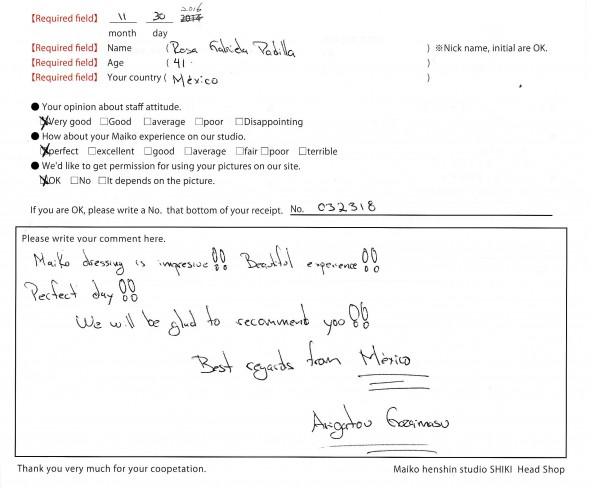 2016
【Required field】 11 30 2014
month day
【Required field】 Name (Rosa Gabriela Padilla ) ※Nick name, initial are OK.
【Required field】 Age (41 )
【Required field】 Your country (México )
● Your opinion about staff attitude.
☒Very good □Good □average □poor □Disappointing
● How about your Maiko experience on our studio.
☒perfect □excellent □good □average □fair □poor □terrible
● We'd like to get permission for using your pictures on our site.
☒OK □No □It depends on the picture.
If you are OK, please write a No. that bottom of your receipt. No. 032318
Please write your comment here.
Maiko dressing is impresive!! Beautiful experience!!
Perfect day!!
We will be glad to recomment you!!
Best regards from México
Arigatou Gozaimasu
Thank you very much for your coopetation. Maiko henshin studio SHIKI Head Shop